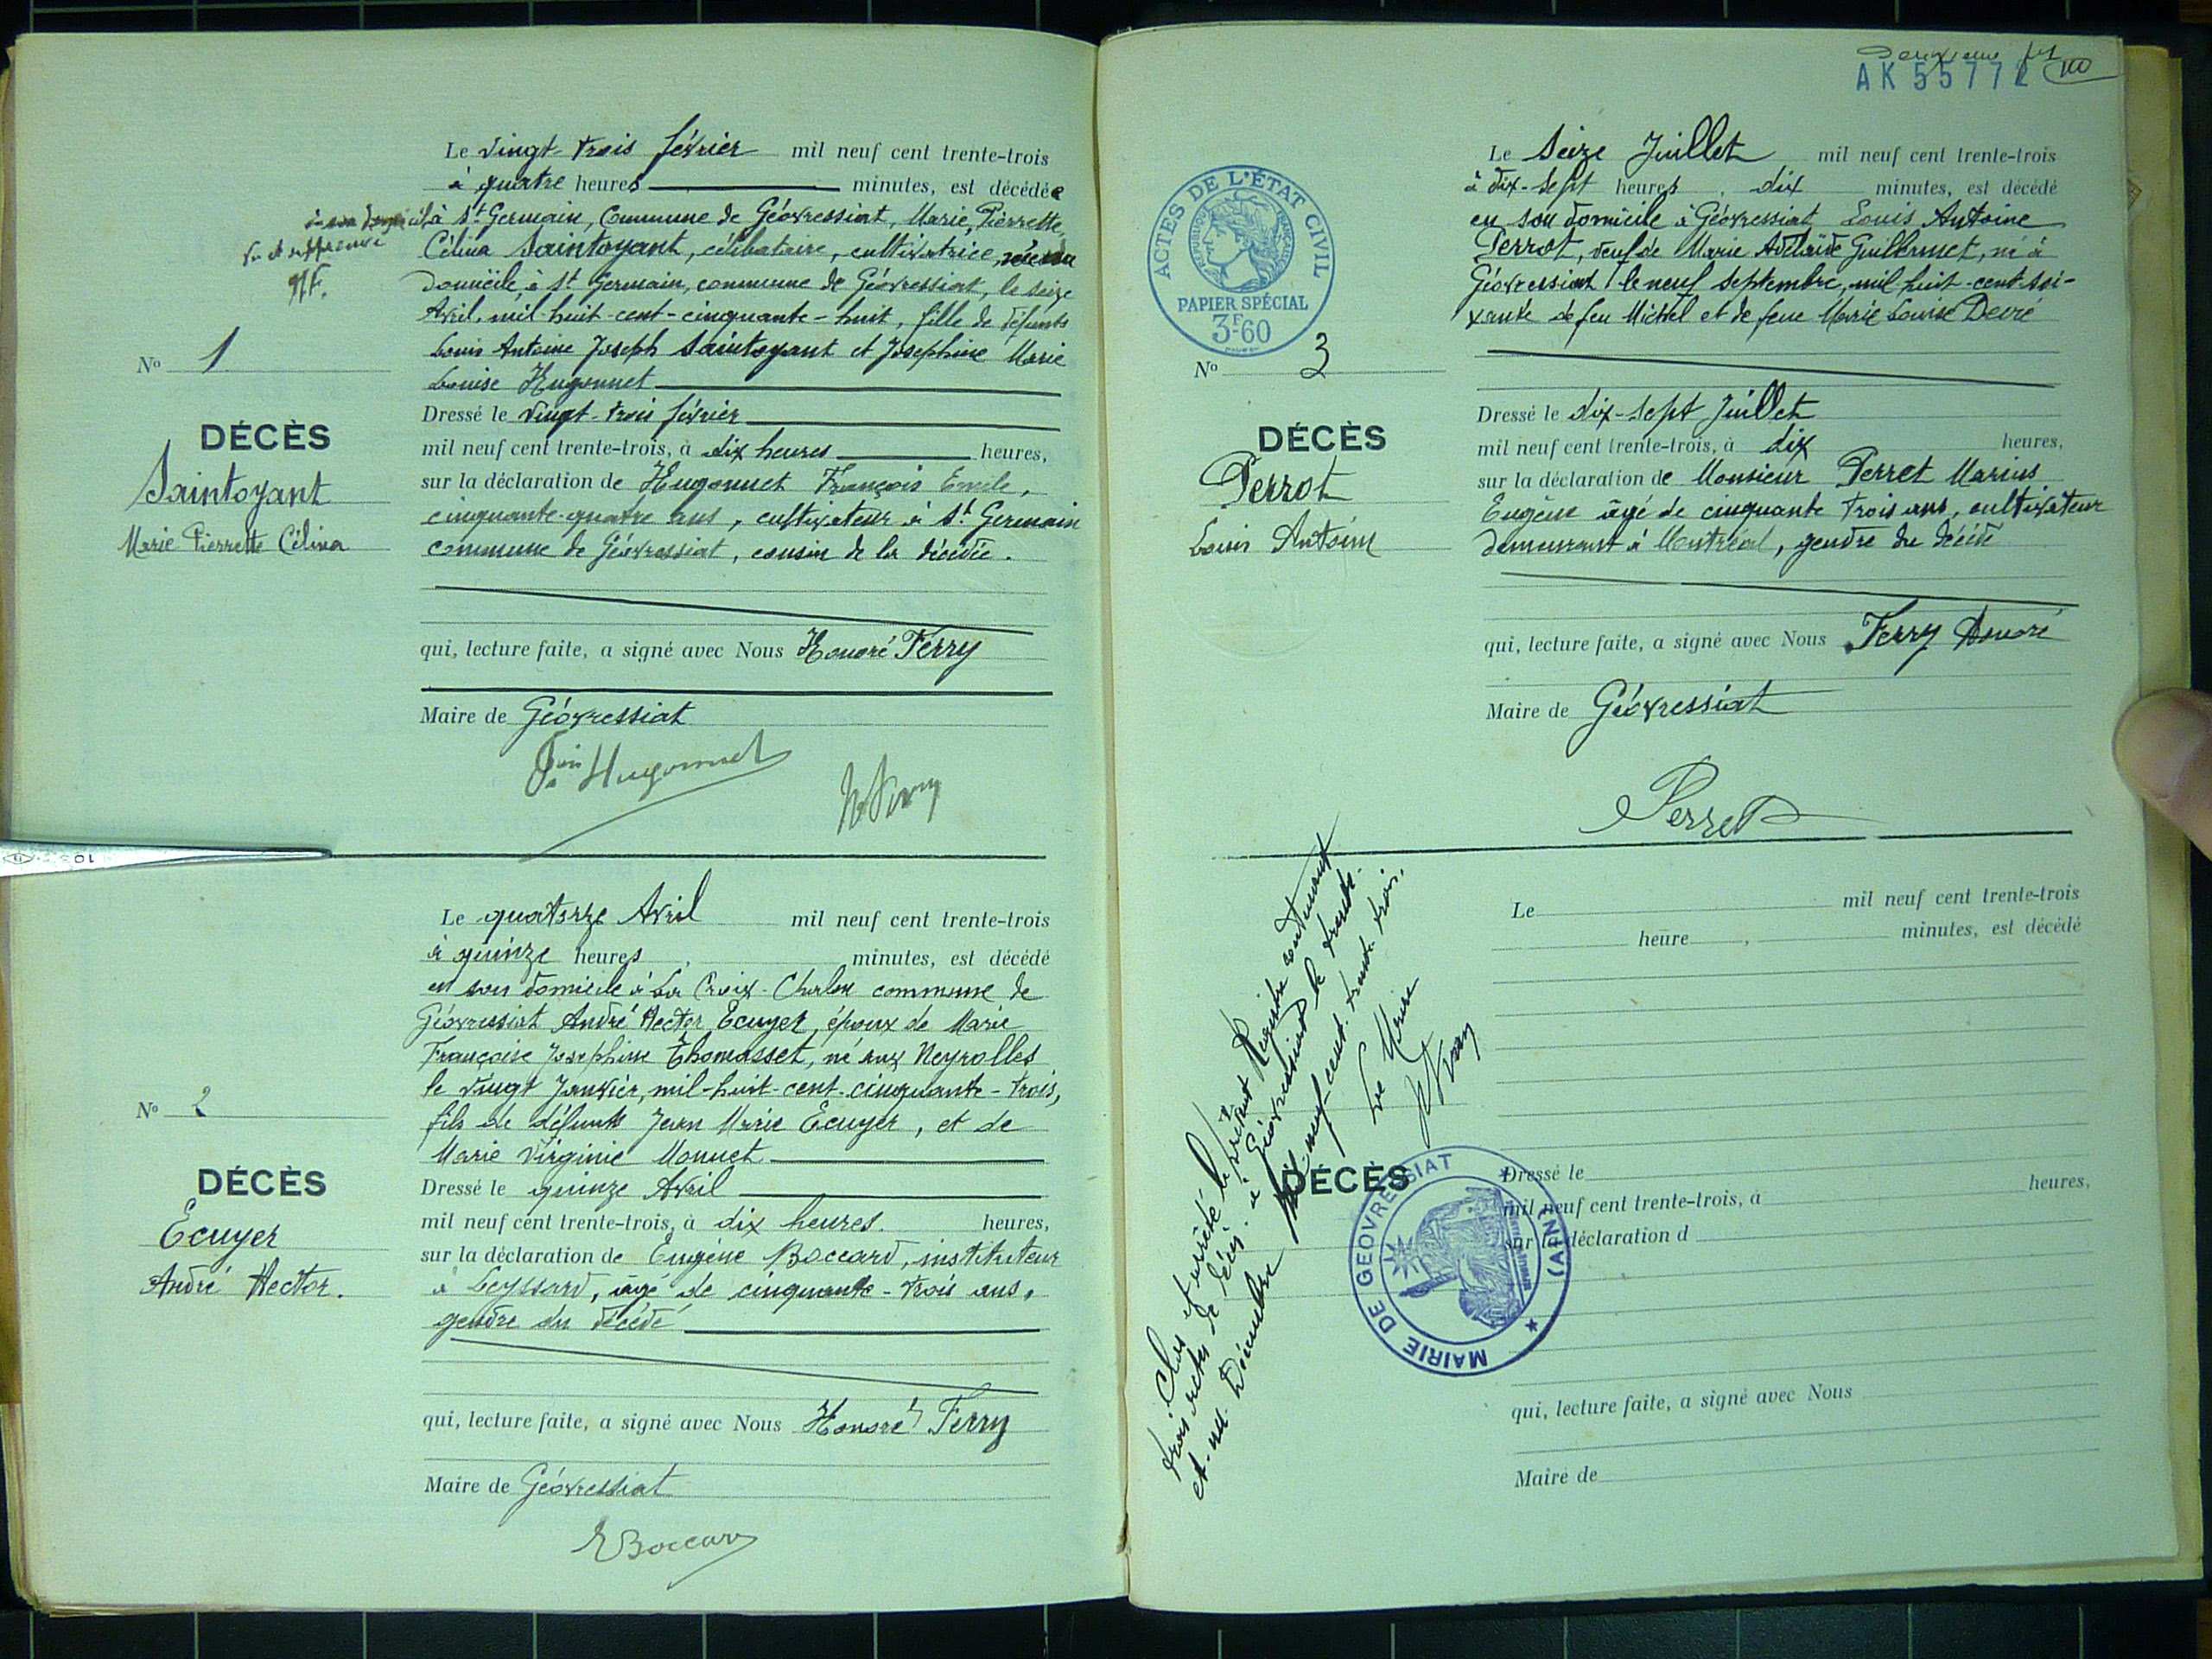 Le vingt-trois février mil neuf cent trente-trois
à quatre heures minutes, est décédée
en son domicile
Vu et approuvé
H.F.
à St Germain, Commune de Géovressiat, Marie, Pierrette,
Célina Saintoyant, célibataire, cultivatrice, née
domicile à St Germain, commune de Géovressiat, le seize
Avril, mil-huit-cent-cinquante-huit, fille de défunts
Louis Antoine Joseph Saintoyant et Josephine Marie
Louise Hugonnet
Nº 1
DÉCÈS
Saintoyant
Marie Pierrette Célina
Dressé le vingt-trois février
mil neuf cent trente-trois, à dix heures heures,
sur la déclaration de Hugonnet François Emile,
cinquante-quatre ans, cultivateur à St Germain
commune de Géovressiat, cousin de la décédée.
qui, lecture faite, a signé avec Nous Honoré Ferry
Maire de Géovressiat
Hugonnet
H Ferry
Le quatorze Avril mil neuf cent trente-trois
à quinze heures, minutes, est décédé
en son domicile à La Croix-Chalon commune de
Géovressiat André Hector Ecuyer, époux de Marie
Françoise Josephine Thomasset, né aux Neyrolles
le vingt Janvier, mil-huit-cent-cinquante-trois,
fils de défunts Jean Marie Ecuyer, et de
Marie Virginie Monnet
Nº 2
DÉCÈS
Ecuyer
André Hector.
Dressé le quinze Avril
mil neuf cent trente-trois, à dix heures. heures,
sur la déclaration de Eugène Boccard, instituteur
à Leyssard, âgé de cinquante-trois ans,
gendre du décédé
qui, lecture faite, a signé avec Nous Honoré Ferry
Maire de Géovressiat
E Boccard
Deuxième
AK 55772
ACTES DE L'ÉTAT CIVIL
RÉPUBLIQUE FRANÇAISE
PAPIER SPÉCIAL
3F60
Le Seize Juillet mil neuf cent trente-trois
à dix-sept heures, dix minutes, est décédé
en son domicile à Géovressiat Louis Antoine
Perrot, veuf de Marie Adélaïde Guillermet, né à
Géovressiat le neuf septembre, mil-huit-cent-soi-
xante de feu Michel et de feue Marie Louise Devié
Nº 3
DÉCÈS
Perrot
Louis Antoine
Dressé le dix-sept Juillet
mil neuf cent trente-trois, à dix heures,
sur la déclaration de Monsieur Perret Marius
Eugène âgé de cinquante trois ans, cultivateur
demeurant à Montréal, gendre du décédé
qui, lecture faite, a signé avec Nous Ferry Honoré
Maire de Géovressiat
Perret
Le mil neuf cent trente-trois
heure, minutes, est décédé
DÉCÈS
Dressé le
mil neuf cent trente-trois, à heures,
sur la déclaration d
qui, lecture faite, a signé avec Nous
Maire de
Clos et arrêté le présent Registre contenant
trois actes de décès. à Géovressiat le trente-
et-un Décembre mil-neuf-cent-trente-trois.
Le Maire
H Ferry
MAIRIE DE GEOVRESSIAT (AIN)